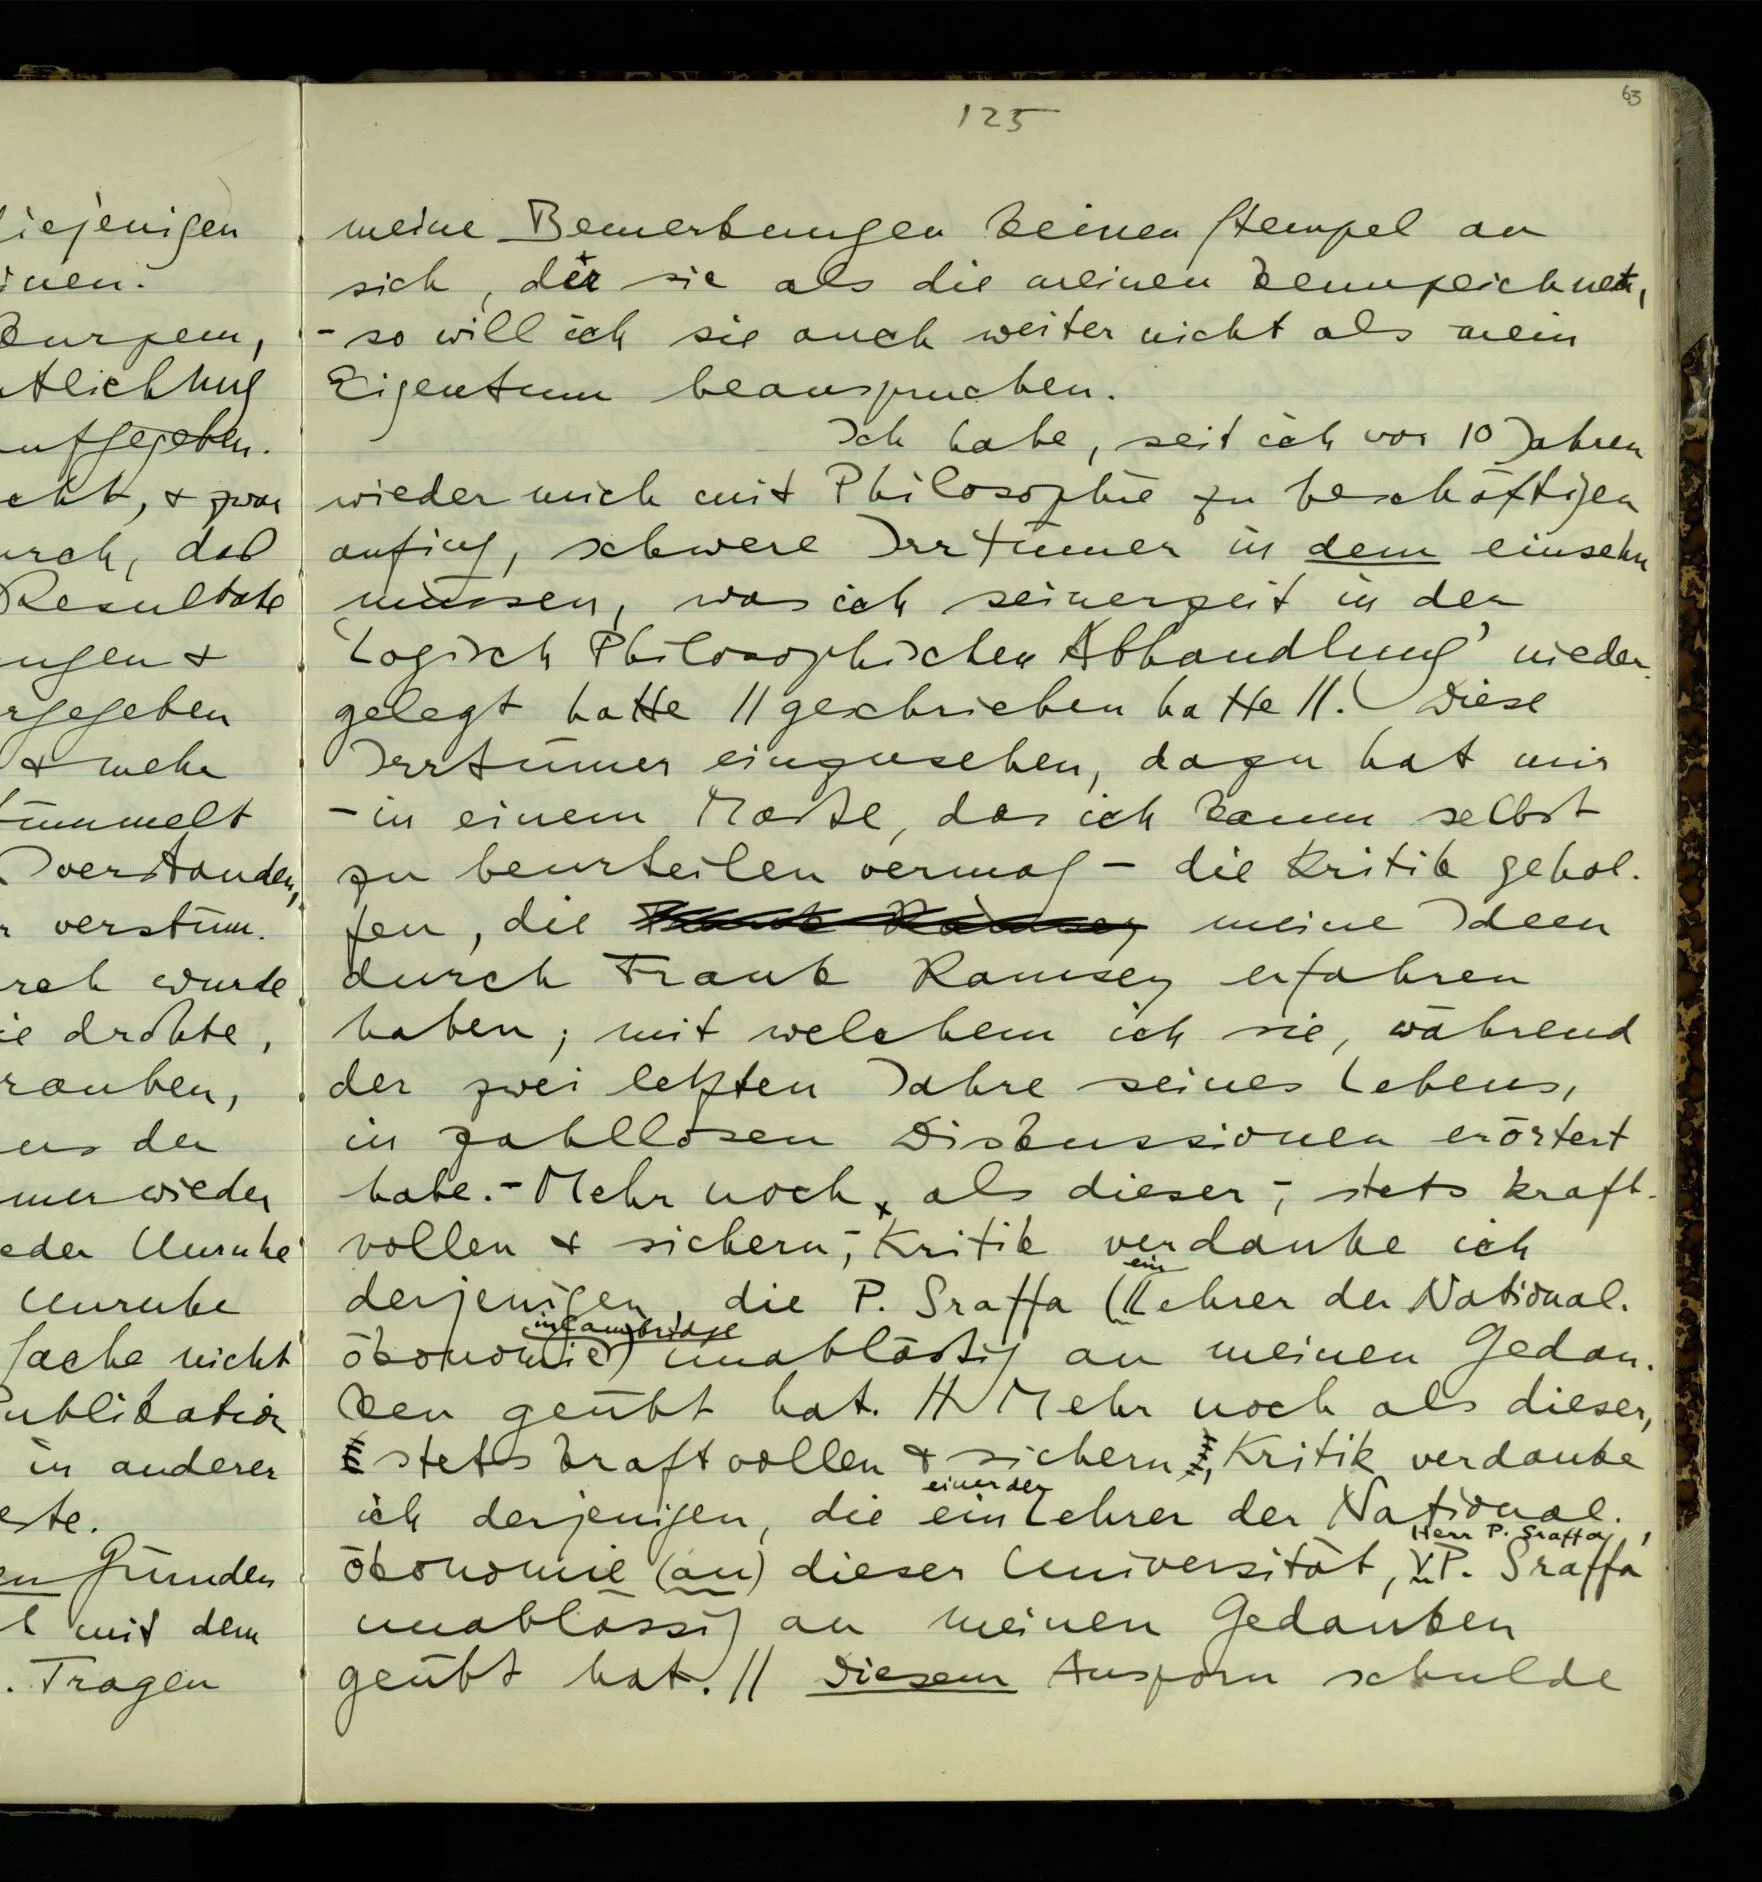 63
125
iejenigen
inen.
urzem,
tlichung
ufgegeben.
cht, & zwar
urch, daß
Resultate
ungen &
rgegeben
& mehr
tümmelt
verstanden,
r verstüm-
rch wurde
ie drohte,
rauben,
us der
mer wieder
eder Unruhe
Unruhe
Sache nicht
Publikation
in anderer
ste.
en Gründen
t mit dem
. Fragen
meine Bemerkungen keinen Stempel an
sich, der sie als die meinen kennzeichnet,
– so will ich sie auch weiter nicht als mein
Eigentum beanspruchen.
Ich habe, seit ich vor 10 Jahren
wieder mich mit Philosophie zu beschäftigen
anfing, schwere Irrtümer in dem einsehn
müssen, was ich seinerzeit in der
'Logisch Philosophischen Abhandlung' nieder-
gelegt hatte // geschrieben hatte //. Diese
Irrtümer einzusehen, dazu hat mir
– in einem Maße, das ich kaum selbst
zu beurteilen vermag – die Kritik gehol-
fen, die Frank Ramsey meine Ideen
durch Frank Ramsey erfahren
haben; mit welchem ich sie, während
der zwei letzten Jahre seines Lebens,
in zahllosen Diskussionen erörtert
habe. – Mehr noch, als dieser –, stets kraft-
vollen & sichern –, Kritik verdanke ich
ein
derjenigen, die P. Sraffa (Lehrer der National-
in Cambridge
ökonomie) unabläßig an meinen Gedan-
ken geübt hat. // Mehr noch als dieser,
stets kraftvollen & sichern, Kritik verdanke
einer der
ich derjenigen, die ein Lehrer der National-
Herr P. Sraffa,
ökonomie (an) dieser Universität, P. Sraffa
unablässig an meinen Gedanken
geübt hat. // Diesem Ansporn schulde